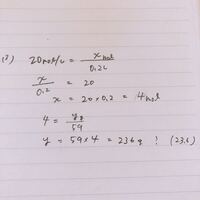 (3) 20mol/L = x mol / 0.2L
x / 0.2 = 20
x = 20×0.2 = 4mol
4 = yg / 59
y = 59×4 = 236g ? (23.6)